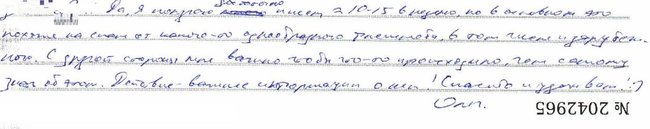 Да, я получаю достаточно писем 210-15 в неделю, но в основном это
похоже на спам от какого-то однообразного , в том числе и зарубеж-
ного. С другой стороны мне важно чтобы что-то происходило, чем самому
знал об этом. Действие - важнее информации о нём! (Спасибо и удачи вам! :)
Олп.
№ 2042965